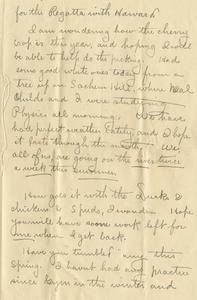 for the Regatta with Harvard
I am wondering how the cherry
crop is this year, and hoping I could
be able to help do the picking. Had
some good white ones today from an
tree up on Sachem Hill, where Neal
Childs and I were studying
Physics all morning. We have
had perfect weather lately and I hope
it lasts through the month. We,
all of us, are going on the river twice
a week this summer.
How goes it with the Ducks &
chickens & spuds, I wonder. Hope
you will have some work left for
me when I get back.
Have you "tumbled" any this
Spring. I haven't had any practice
since gym in the winter and